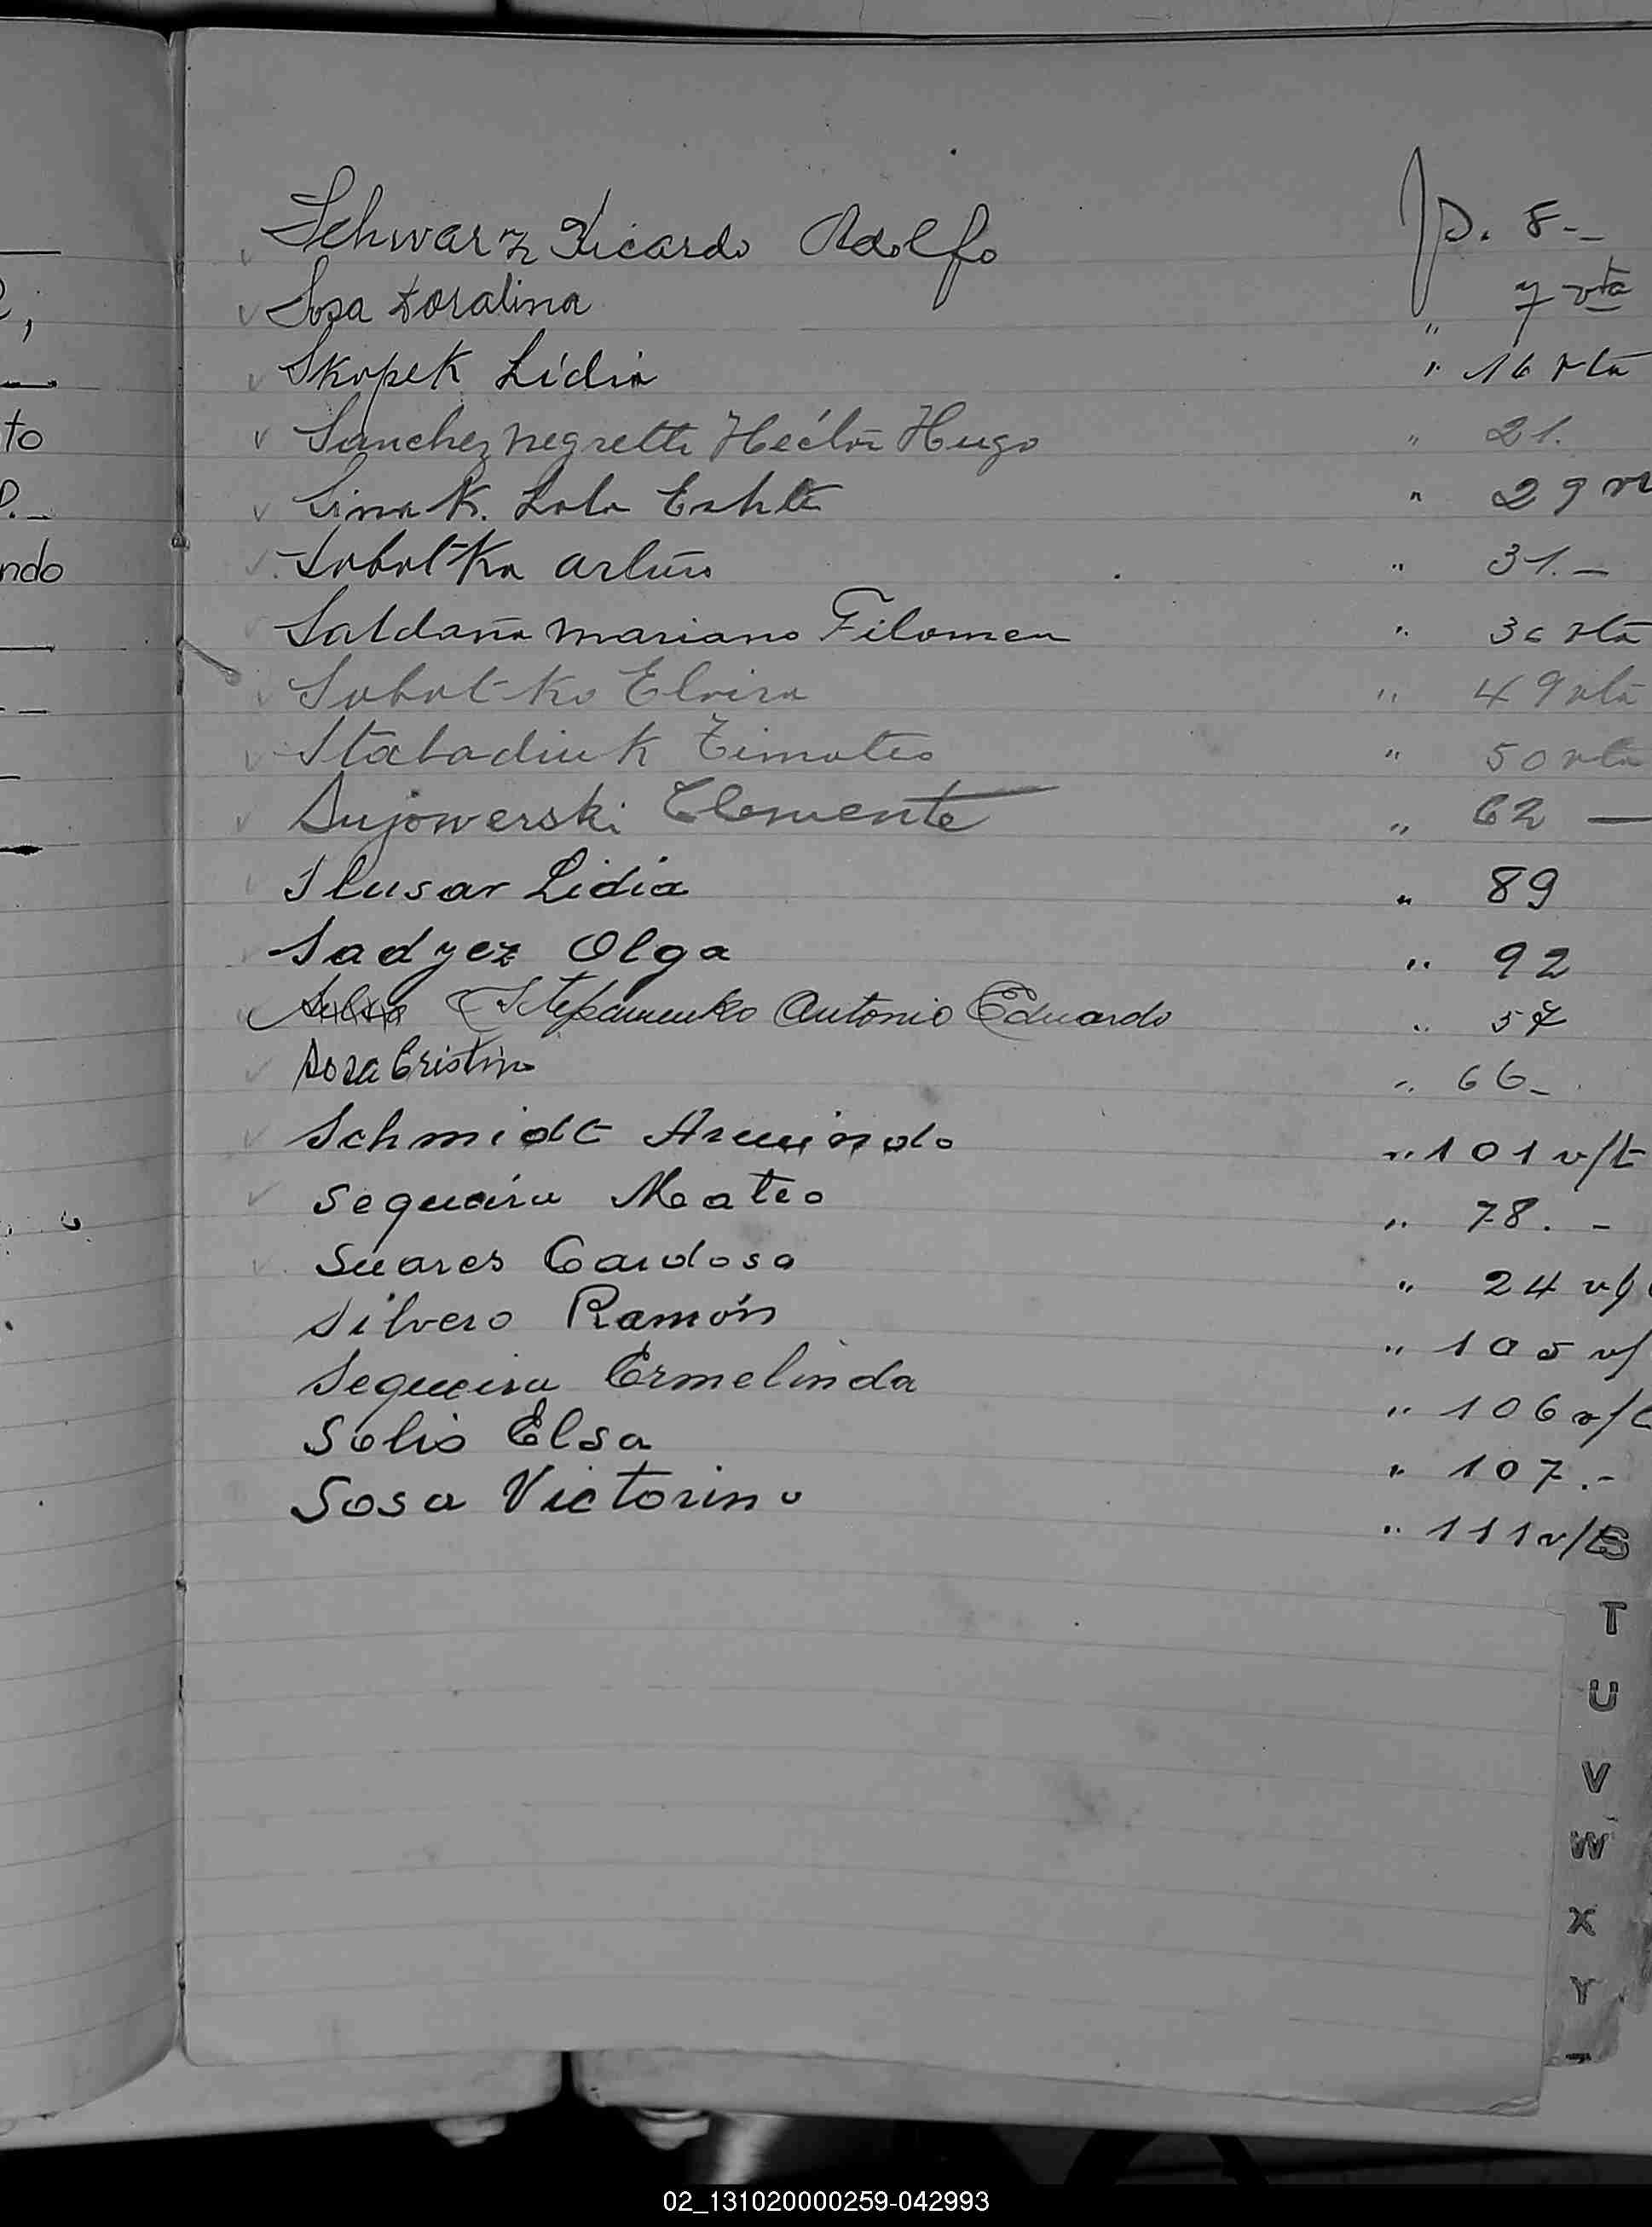 Schwarz Ricardo Adolfo p. 8.-
Sosa Doralina " 7 vta
Skopek Lidia " 16 vta
Sanchez Negrette Héctor Hugo " 21.
Lola " 29
Sobotka Arturo " 31.-
Saldaña Mariano Filomen " 36 vta
Sobotko Elvira " 49 vta
Stabadiuk Timoteo " 50 vta
Sujowerski Clemente " 62 —
Slusar Lidia " 89
Sadyez Olga " 92
Stepanenko Antonio Eduardo " 57
Sosa Cristino " 66-
Schmidt Armindo " 101 v/t
Sequeira Mateo " 78.-
Suares Cardoso " 24 v/
Silvero Ramón " 105 v/
Sequeira Ermelinda " 106 v/t
Solis Elsa " 107.-
Sosa Victorino " 111 v/t
S
T
U
V
W
X
Y
to
ndo
02_131020000259-042993